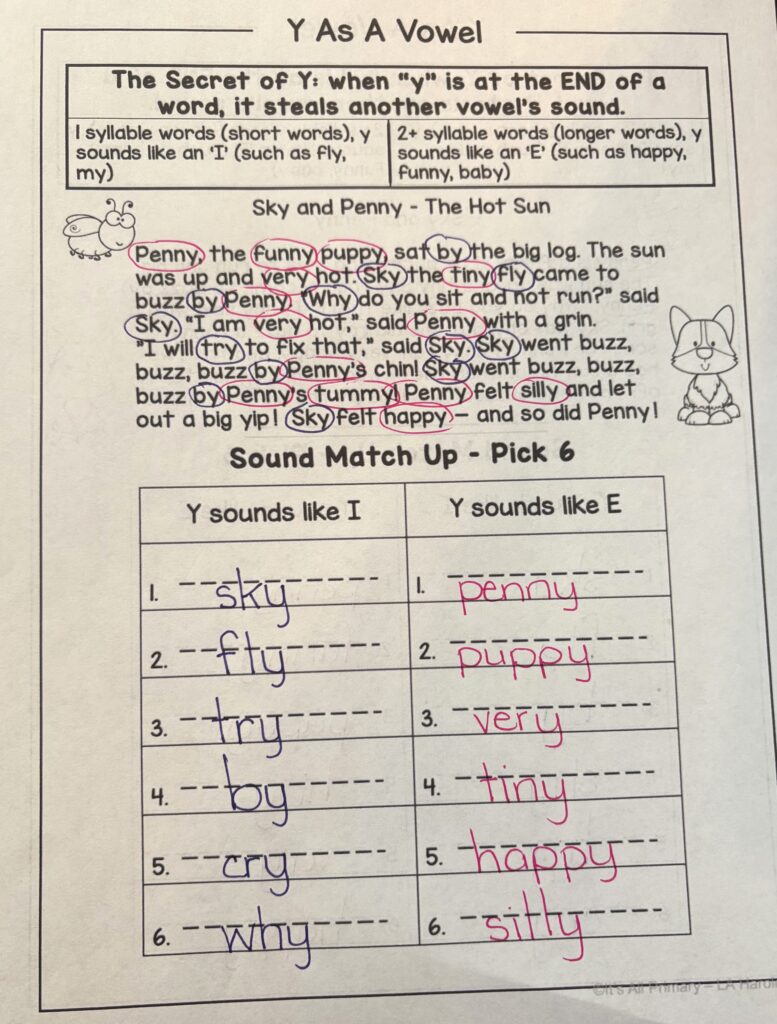 Y As A Vowel
The Secret of Y: when "y" is at the END of a
word, it steals another vowel's sound.
1 syllable words (short words), y
sounds like an 'I' (such as fly,
my)
2+ syllable words (longer words), y
sounds like an 'E' (such as happy,
funny, baby)
Sky and Penny - The Hot Sun
Penny, the funny puppy, sat by the big log. The sun
was up and very hot. Sky the tiny fly came to
buzz by Penny. "Why do you sit and not run?" said
Sky. "I am very hot," said Penny with a grin.
"I will try to fix that," said Sky. Sky went buzz,
buzz, buzz by Penny's chin! Sky went buzz, buzz,
buzz by Penny's tummy! Penny felt silly and let
out a big yip! Sky felt happy – and so did Penny!
Sound Match Up - Pick 6
Y sounds like I
Y sounds like E
1. sky
1. penny
2. fly
2. puppy
3. try
3. very
4. by
4. tiny
5. cry
5. happy
6. why
6. silly
©It's All Primary – LA Hardi